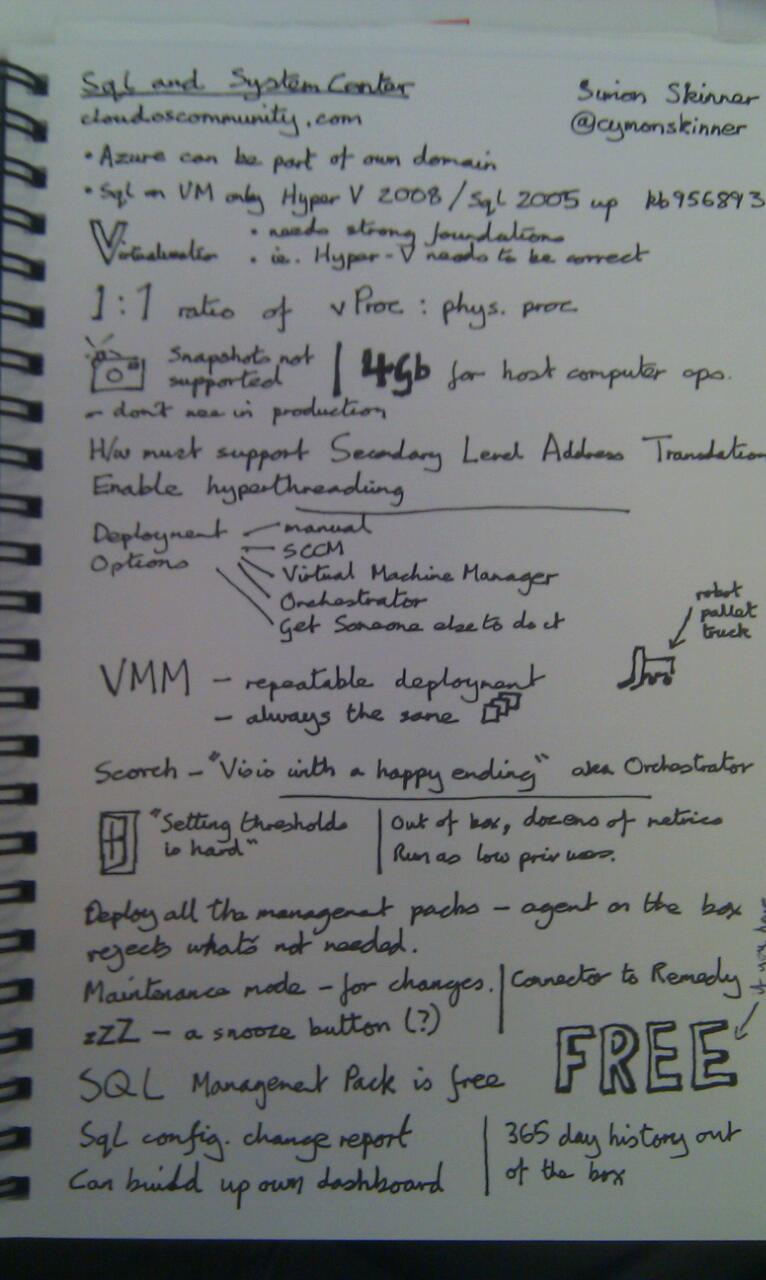 Sql and System Center
Simon Skinner
cloudoscommunity.com
@cymonskinner
• Azure can be part of own domain
• Sql on VM only Hyper V 2008 / Sql 2005 up kb956893
Virtualisation • needs strong foundations
• ie. Hyper-V needs to be correct
1:1 ratio of vProc : phys. proc
Snapshots not supported
- don't use in production
4Gb for host computer ops.
H/w must support Secondary Level Address Translation
Enable hyperthreading
Deployment Options
manual
SCCM
Virtual Machine Manager
Orchestrator
Get Someone else to do it
robot
pallet
truck
VMM - repeatable deployment
- always the same
Scorch - "Visio with a happy ending" aka Orchestrator
"Setting thresholds
is hard"
Out of box, dozens of metrics
Run as low priv
Deploy all the management packs - agent on the box
rejects what's not needed.
Maintenance mode - for changes.
Connector to Remedy
zZZ - a snooze button (?)
if you have
FREE
SQL Management Pack is free
Sql config. change report
365 day history out
of the box
Can build up own dashboard